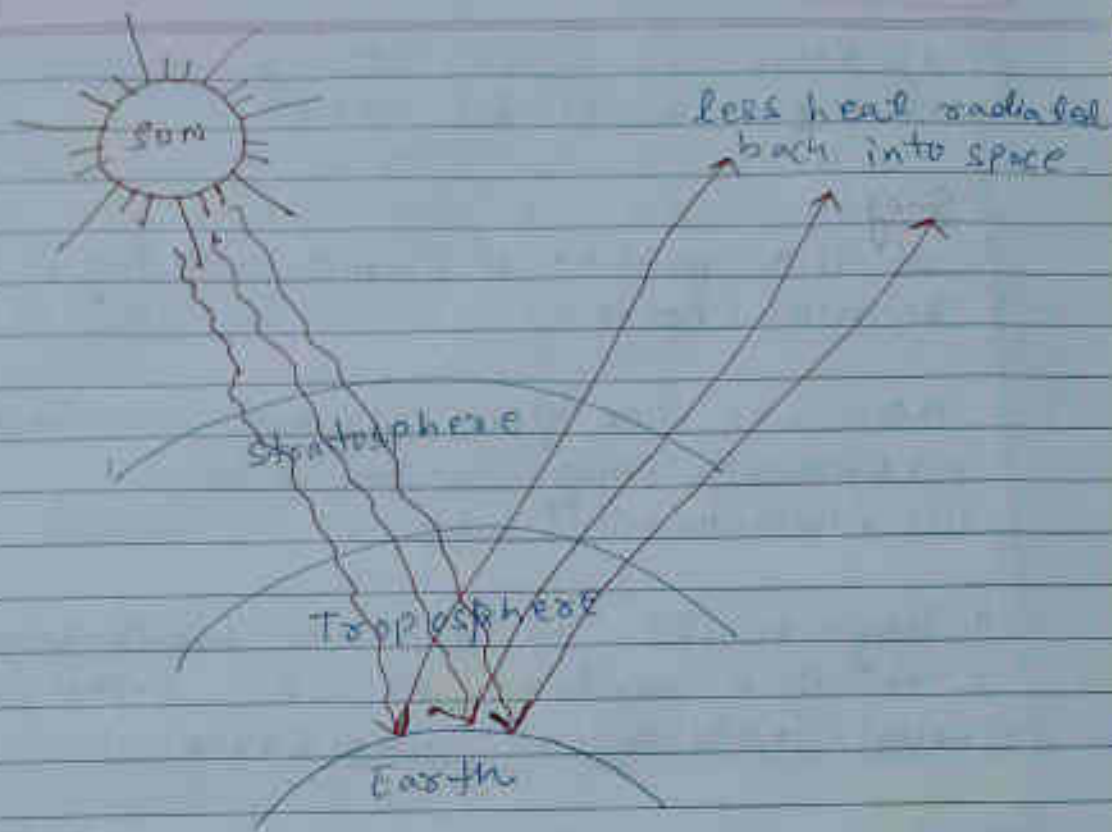 sun
less heat radiated
back into space
Stratosphere
Troposphere
Earth